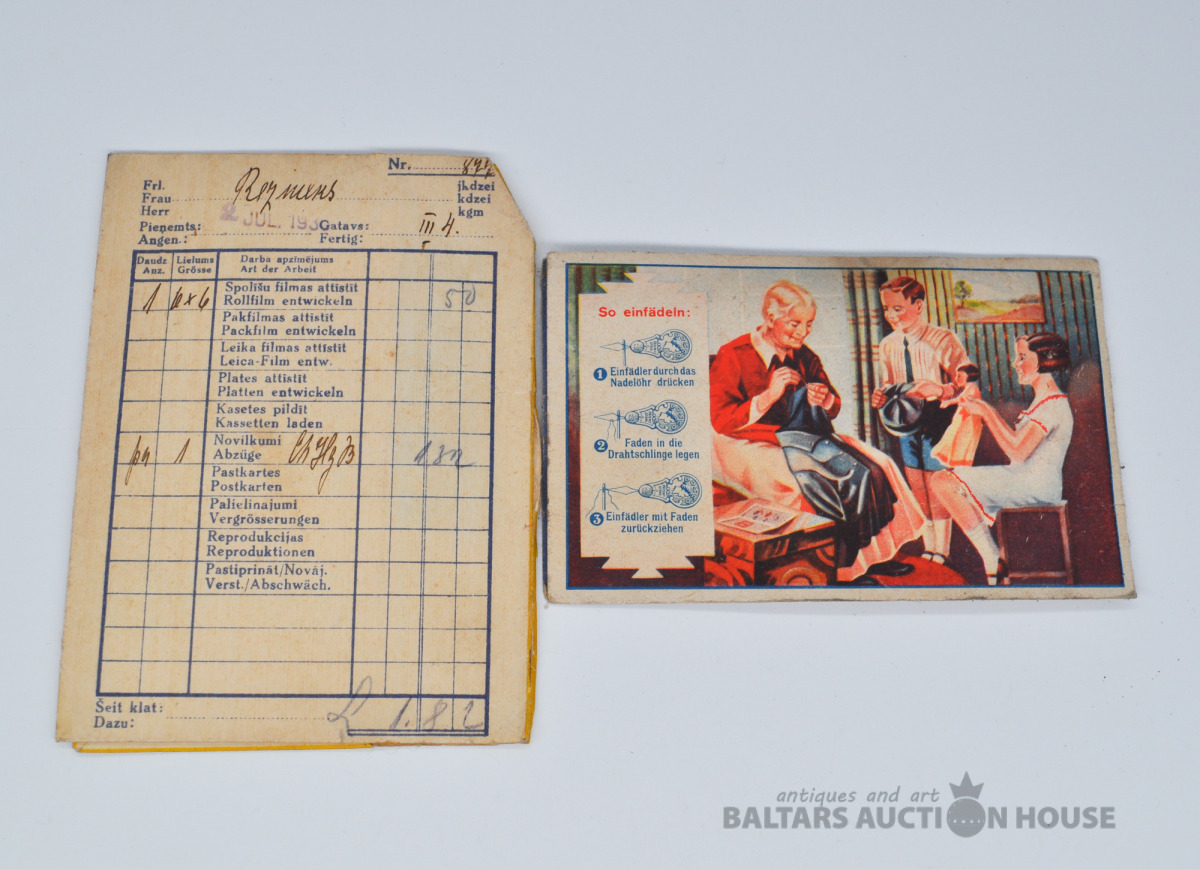 Nr. 877
Frl. jkdzei
Frau kdzei
Herr kgm
Pieņemts: 2 JUL. 193 Gatavs: III 4.
Angen.: Fertig:
Daudz Lielums Darba apzīmējums
Anz. Grösse Art der Arbeit
1 6x6 Spolīšu filmas attīstīt 50
Rollfilm entwickeln
Pakfilmas attīstīt
Packfilm entwickeln
Leika filmas attīstīt
Leica-Film entw.
Plates attīstīt
Platten entwickeln
Kasetes pildīt
Kassetten laden
Novilkumi
1 Abzüge 132
Pastkartes
Postkarten
Palielinājumi
Vergrösserungen
Reprodukcijas
Reproduktionen
Pastiprināt/Novāj.
Verst./Abschwäch.
Šeit klāt:
Dazu: 1.82
So einfädeln:
1 Einfädler durch das
Nadelöhr drücken
2 Faden in die
Drahtschlinge legen
3 Einfädler mit Faden
zurückziehen
antiques and art
BALTARS AUCTION HOUSE